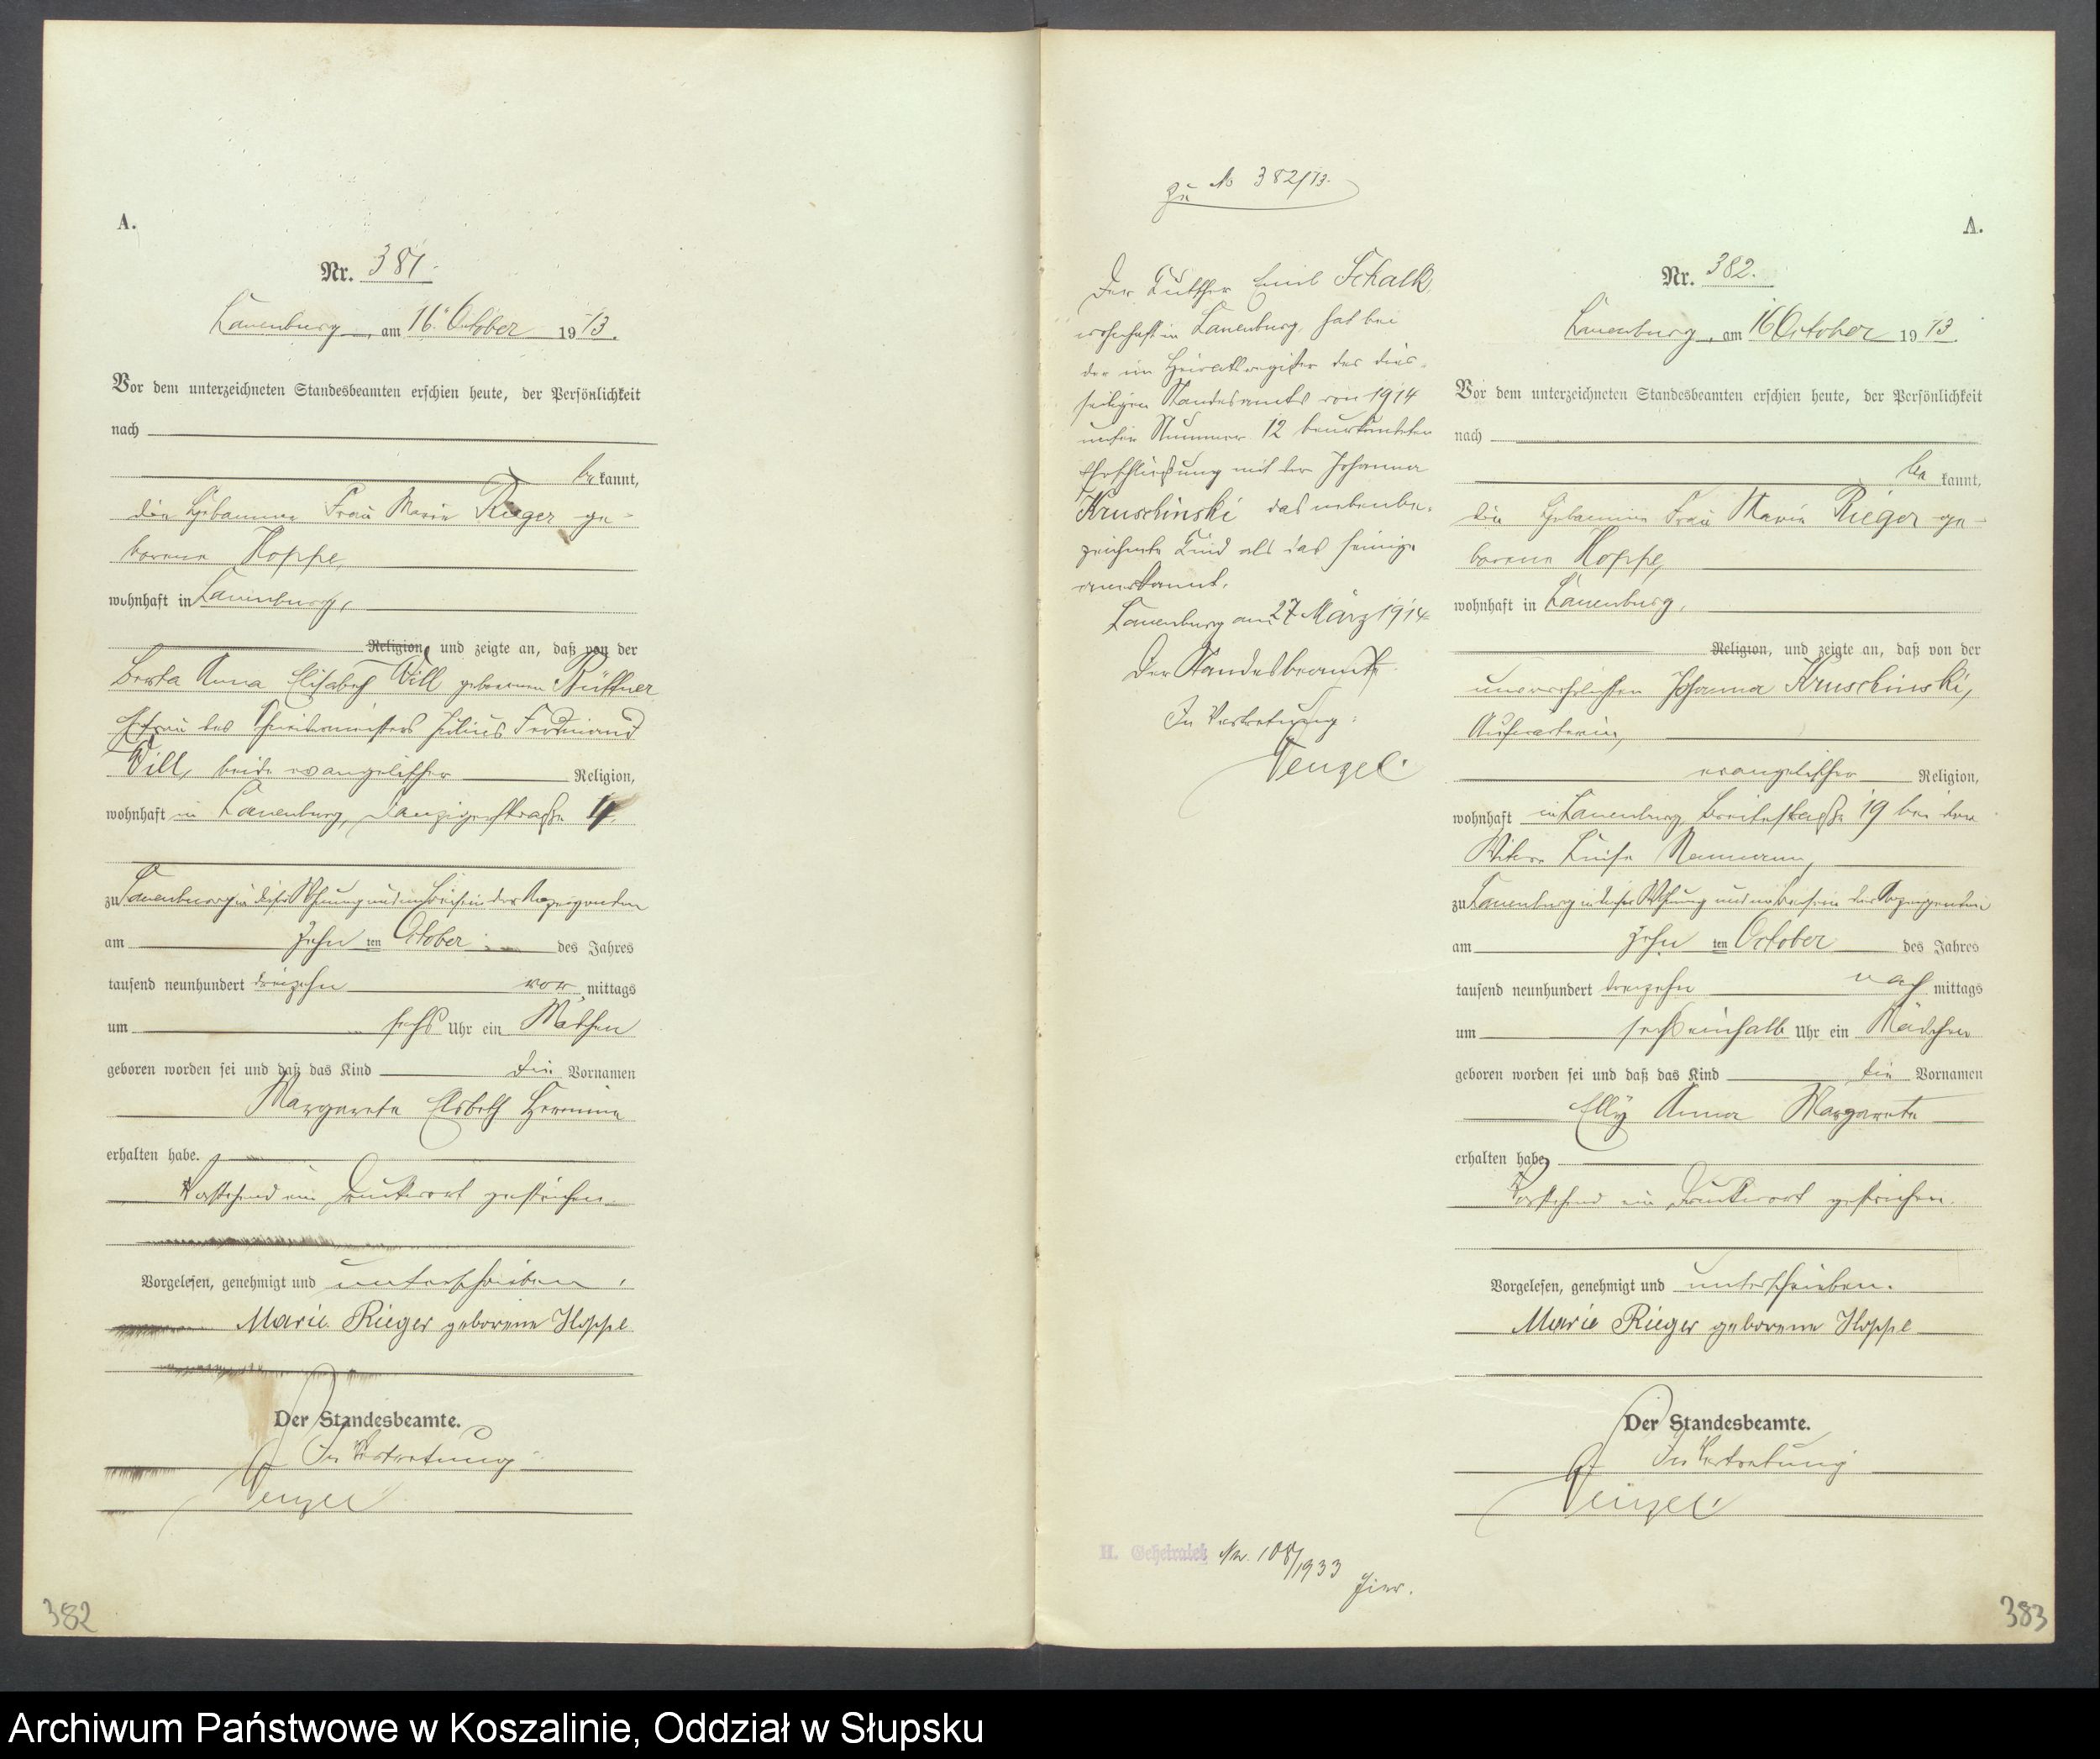 A.
Nr. 381.
Lauenburg, am 16. October 1913.
Vor dem unterzeichneten Standesbeamten erschien heute, der Persönlichkeit
nach
bekannt,
die Hebamme Frau Marie Rieger ge-
borene Hoppe,
wohnhaft in Lauenburg,
Religion, und zeigte an, daß von der
Berta Anna Elisabeth Vill geborenen Büttner
Ehefrau des Schneidermeisters Julius Ferdinand
Vill, beide evangelischer Religion,
wohnhaft in Lauenburg, Danzigerstraße
zu Lauenburg in dieser Wohnung und im Beisein der Anzeigenden
am zehnten October des Jahres
tausend neunhundert dreizehn vormittags
um sechs Uhr ein Mädchen
geboren worden sei und daß das Kind die Vornamen
Margarete Elsbeth Hermine
erhalten habe.
Vorstehend ein Druckwort gestrichen.
Vorgelesen, genehmigt und unterschrieben.
Marie Rieger geborene Hoppe
Der Standesbeamte.
In Vertretung
Venzel
382
Zu No 382/13.
Der Kutscher Emil Schalk,
wohnhaft in Lauenburg, hat bei
der im Heiratsregister des dies-
seitigen Standesamts von 1914
unter Nummer 12 beurkundeten
Eheschließung mit der Johanna
Kruschinski das nebenbe-
zeichnete Kind als das seinige
anerkannt.
Lauenburg am 27 März 1914
Der Standesbeamte.
In Vertretung:
Venzel
H. Nr. 108/1933 hier.
A.
Nr. 382.
Lauenburg, am 16 October 1913.
Vor dem unterzeichneten Standesbeamten erschien heute, der Persönlichkeit
nach
bekannt,
die Hebamme Frau Marie Rieger ge-
borene Hoppe,
wohnhaft in Lauenburg,
Religion, und zeigte an, daß von der
unverehelichten Johanna Kruschinski,
Aufwärterin,
evangelischer Religion,
wohnhaft in Lauenburg, Breitestraße 19 bei der
Witwe Luise Neumann,
zu Lauenburg in dieser Wohnung und im Beisein der Anzeigenden
am zehnten October des Jahres
tausend neunhundert dreizehn nachmittags
um sechseinhalb Uhr ein Mädchen
geboren worden sei und daß das Kind die Vornamen
Elly Anna Margarete
erhalten habe.
Vorstehend ein Druckwort gestrichen.
Vorgelesen, genehmigt und unterschrieben.
Marie Rieger geborene Hoppe
Der Standesbeamte.
In Vertretung
Venzel
383
Archiwum Państwowe w Koszalinie, Oddział w Słupsku